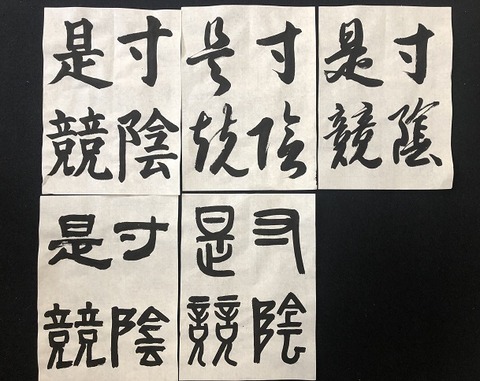 寸陰
是競
寸陰
是競
寸陰
是競
寸陰
是競
寸陰
是競